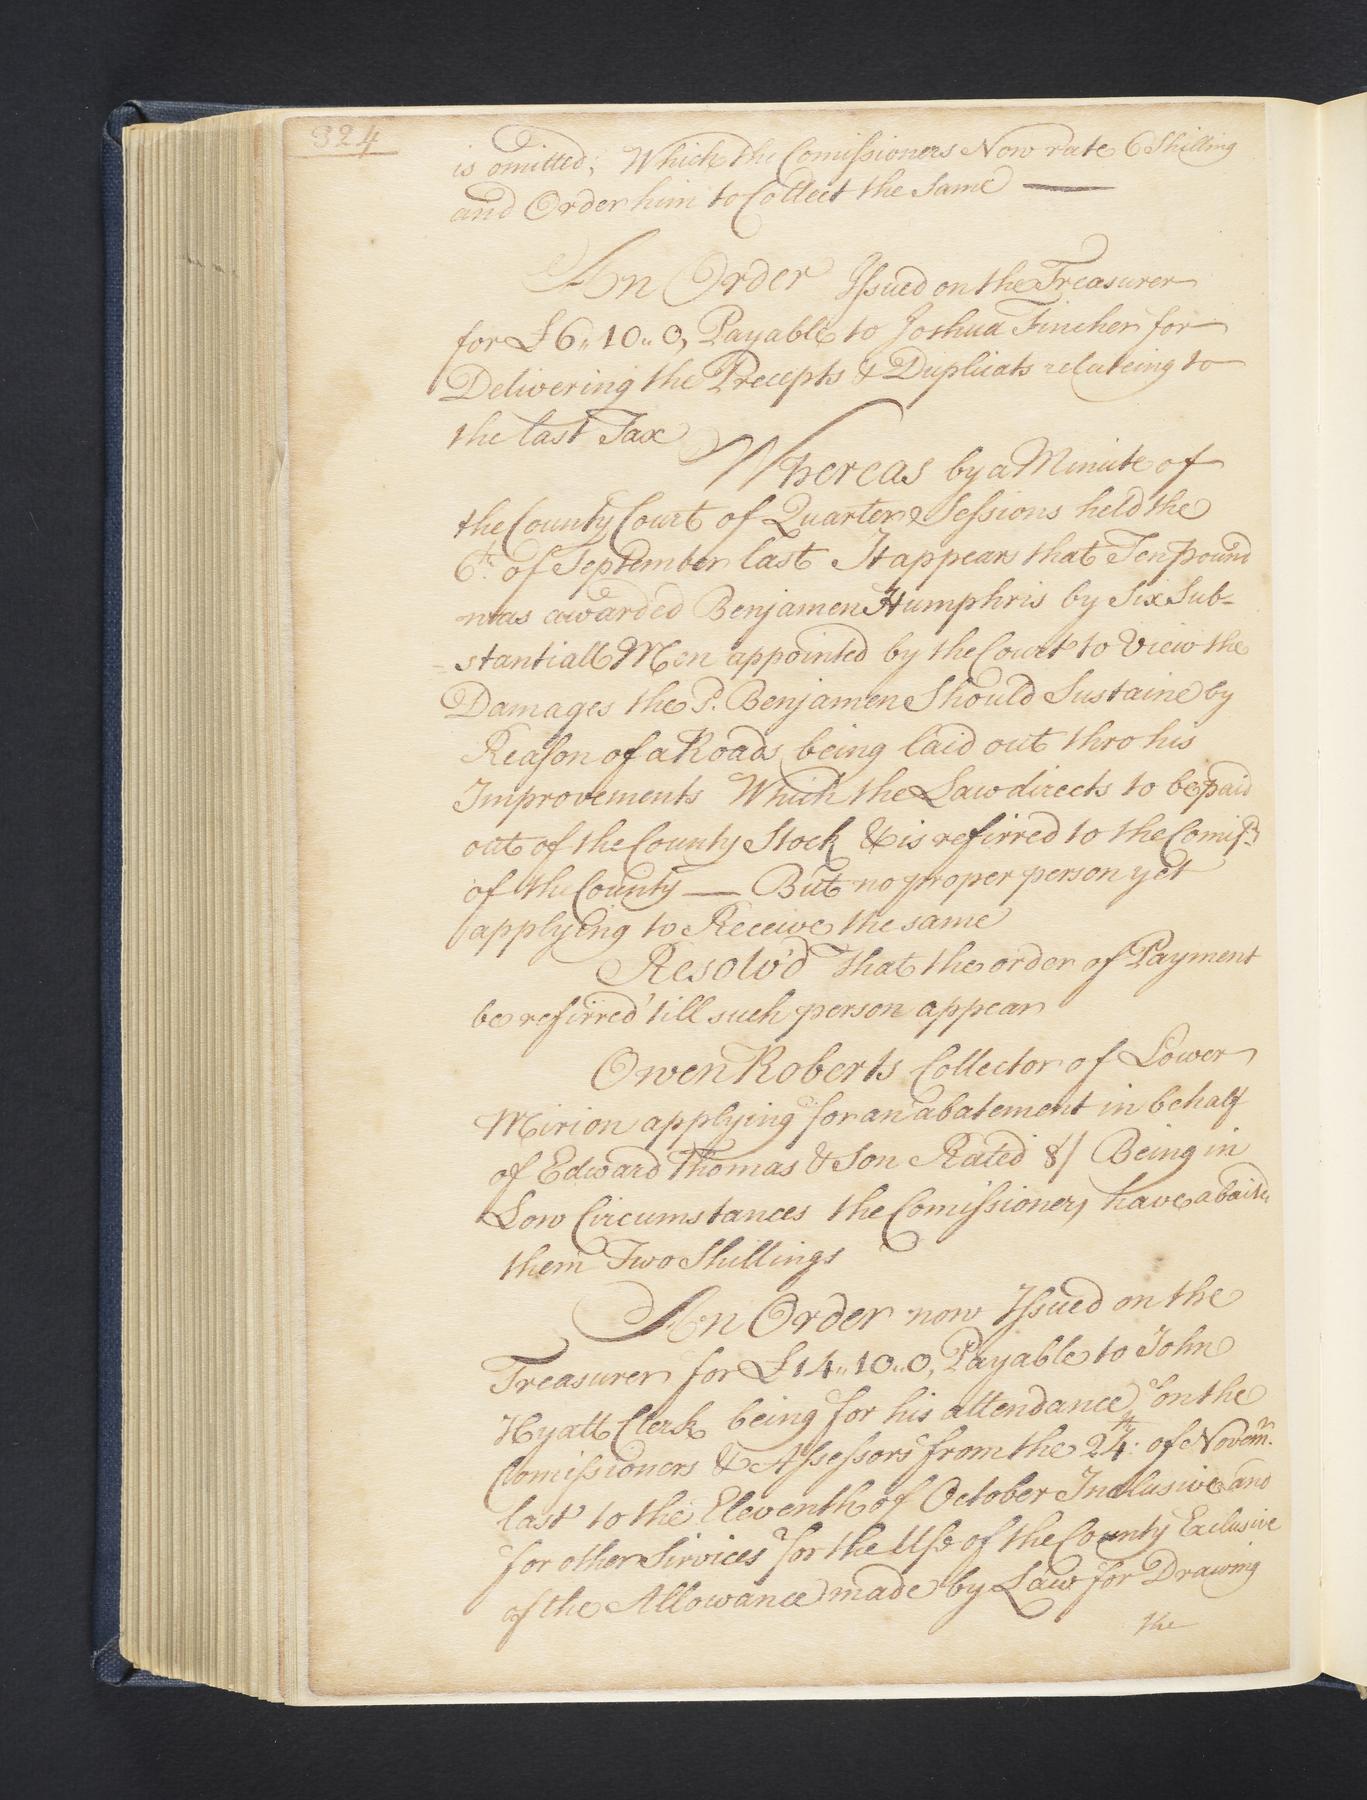 324
is omitted; Which the Comissioners Now rate 6 Shilling
and Order him to Collect the Same —
An Order Issued on the Treasurer
for £6,, 10,, 0, Payable to Joshua Fincher for
Delivering the Precepts & Duplicats relateing to
the last Tax
Whereas by a Minute of
the County Court of Quarter Sessions held the
6th: of September last It appears that Ten pound
was awarded Benjamen Humphris by Six Sub-
-stantiall Men appointed by the Court to View the
Damages the Sd. Benjamen Should Sustaine by
Reason of a Road being laid out thro his
Improvements Which the Law directs to be paid
out of the County Stock & is refirred to the Comissrs
of the County — But no proper person yet
applying to Receive the same
Resolv'd That the order of Payment
be refirred till such person appear
Owen Roberts Collector of Lower
Mirion applying for an abatement in behalf
of Edward Thomas & Son Rated 8/ Being in
Low Circumstances the Comissioners have abaited
them Two Shillings
An Order now Issued on the
Treasurer for £14,, 10,, 0, Payable to John
Hyatt Clerk being for his attendance on the
Comissioners & Assessors from the 24th: of Novemr.
last to the Eleventh of October Inclusive and
for other Sirvices for the Use of the County Exclusive
of the Allowance made by Law for Drawing
the